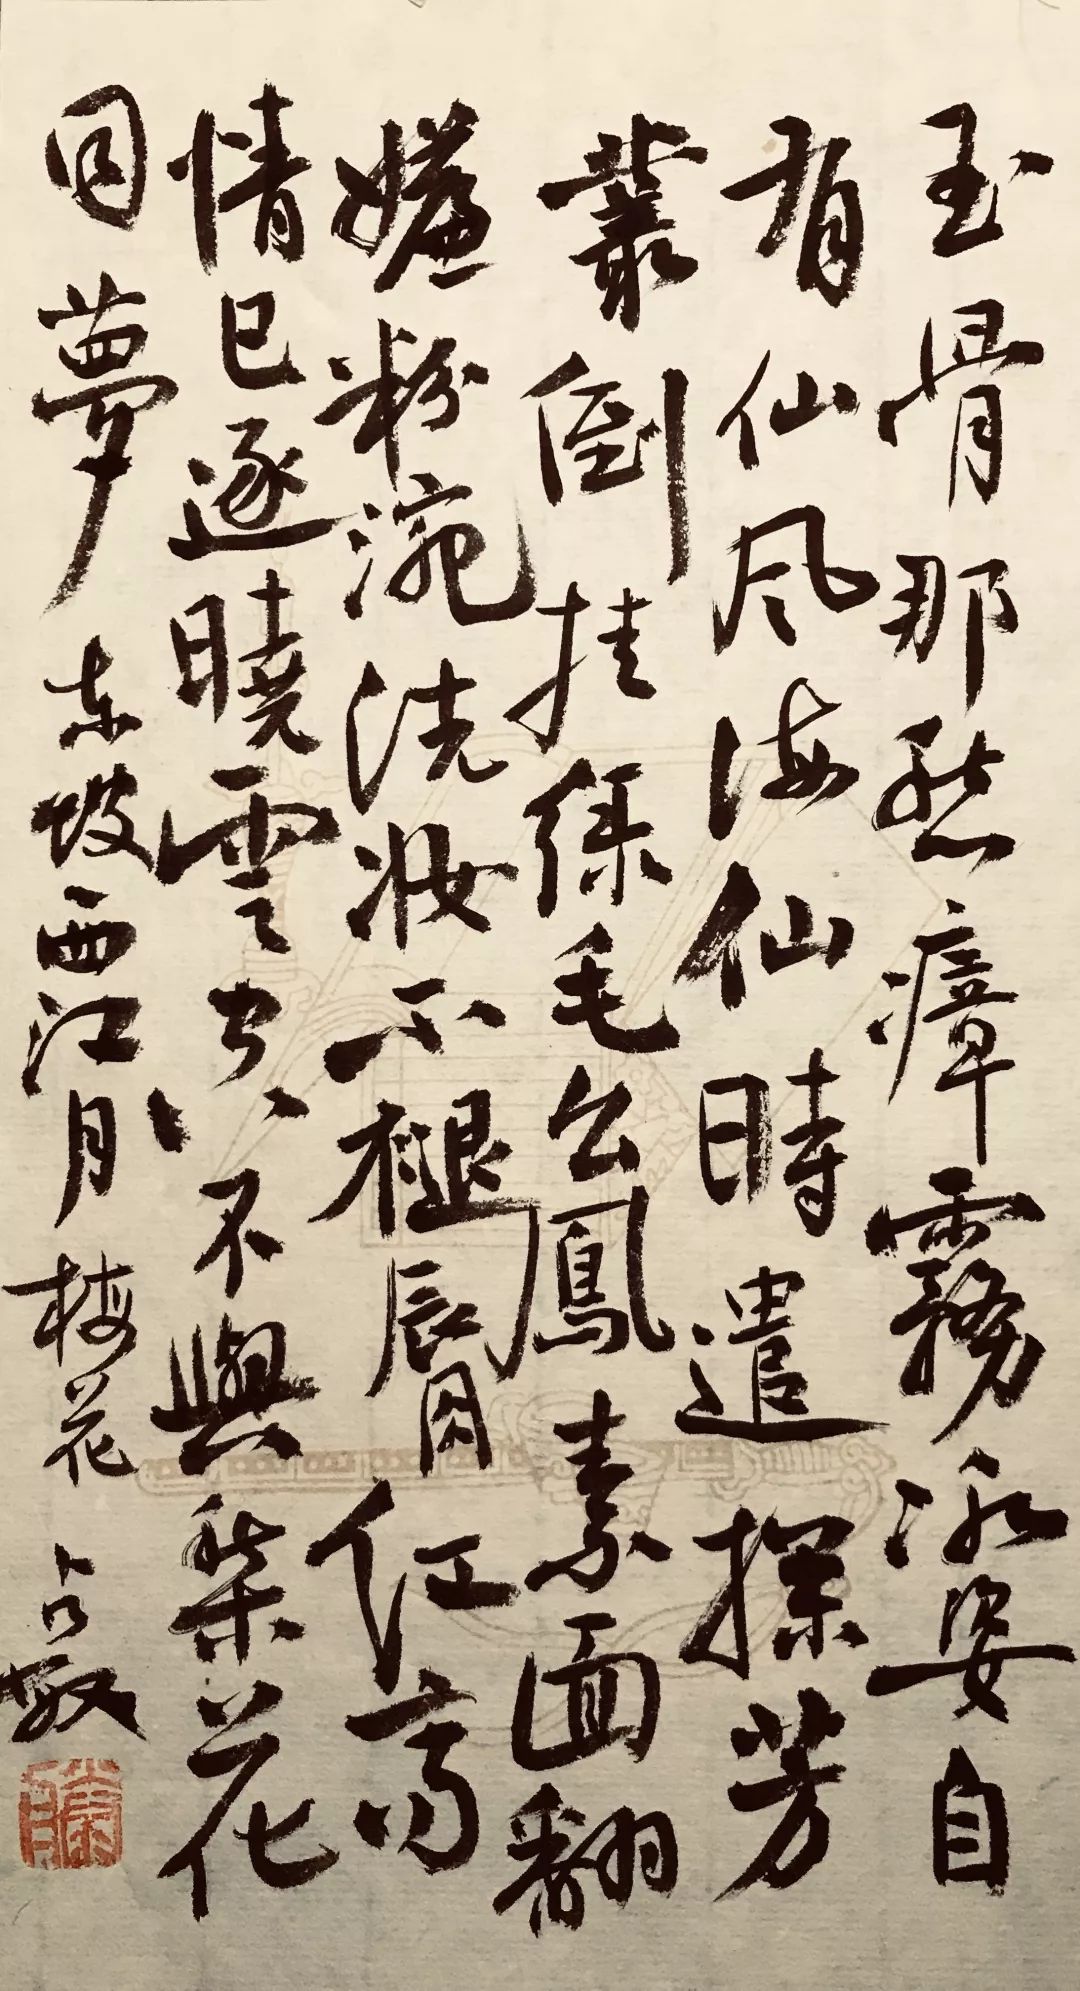 玉骨那愁瘴霧冰姿自
有仙风海仙時遣探芳
叢倒挂绿毛幺鳳素面翻
嫌粉涴洗妆不褪唇红高
情已逐曉雲空不與梨花
同夢
东坡西江月 梅花